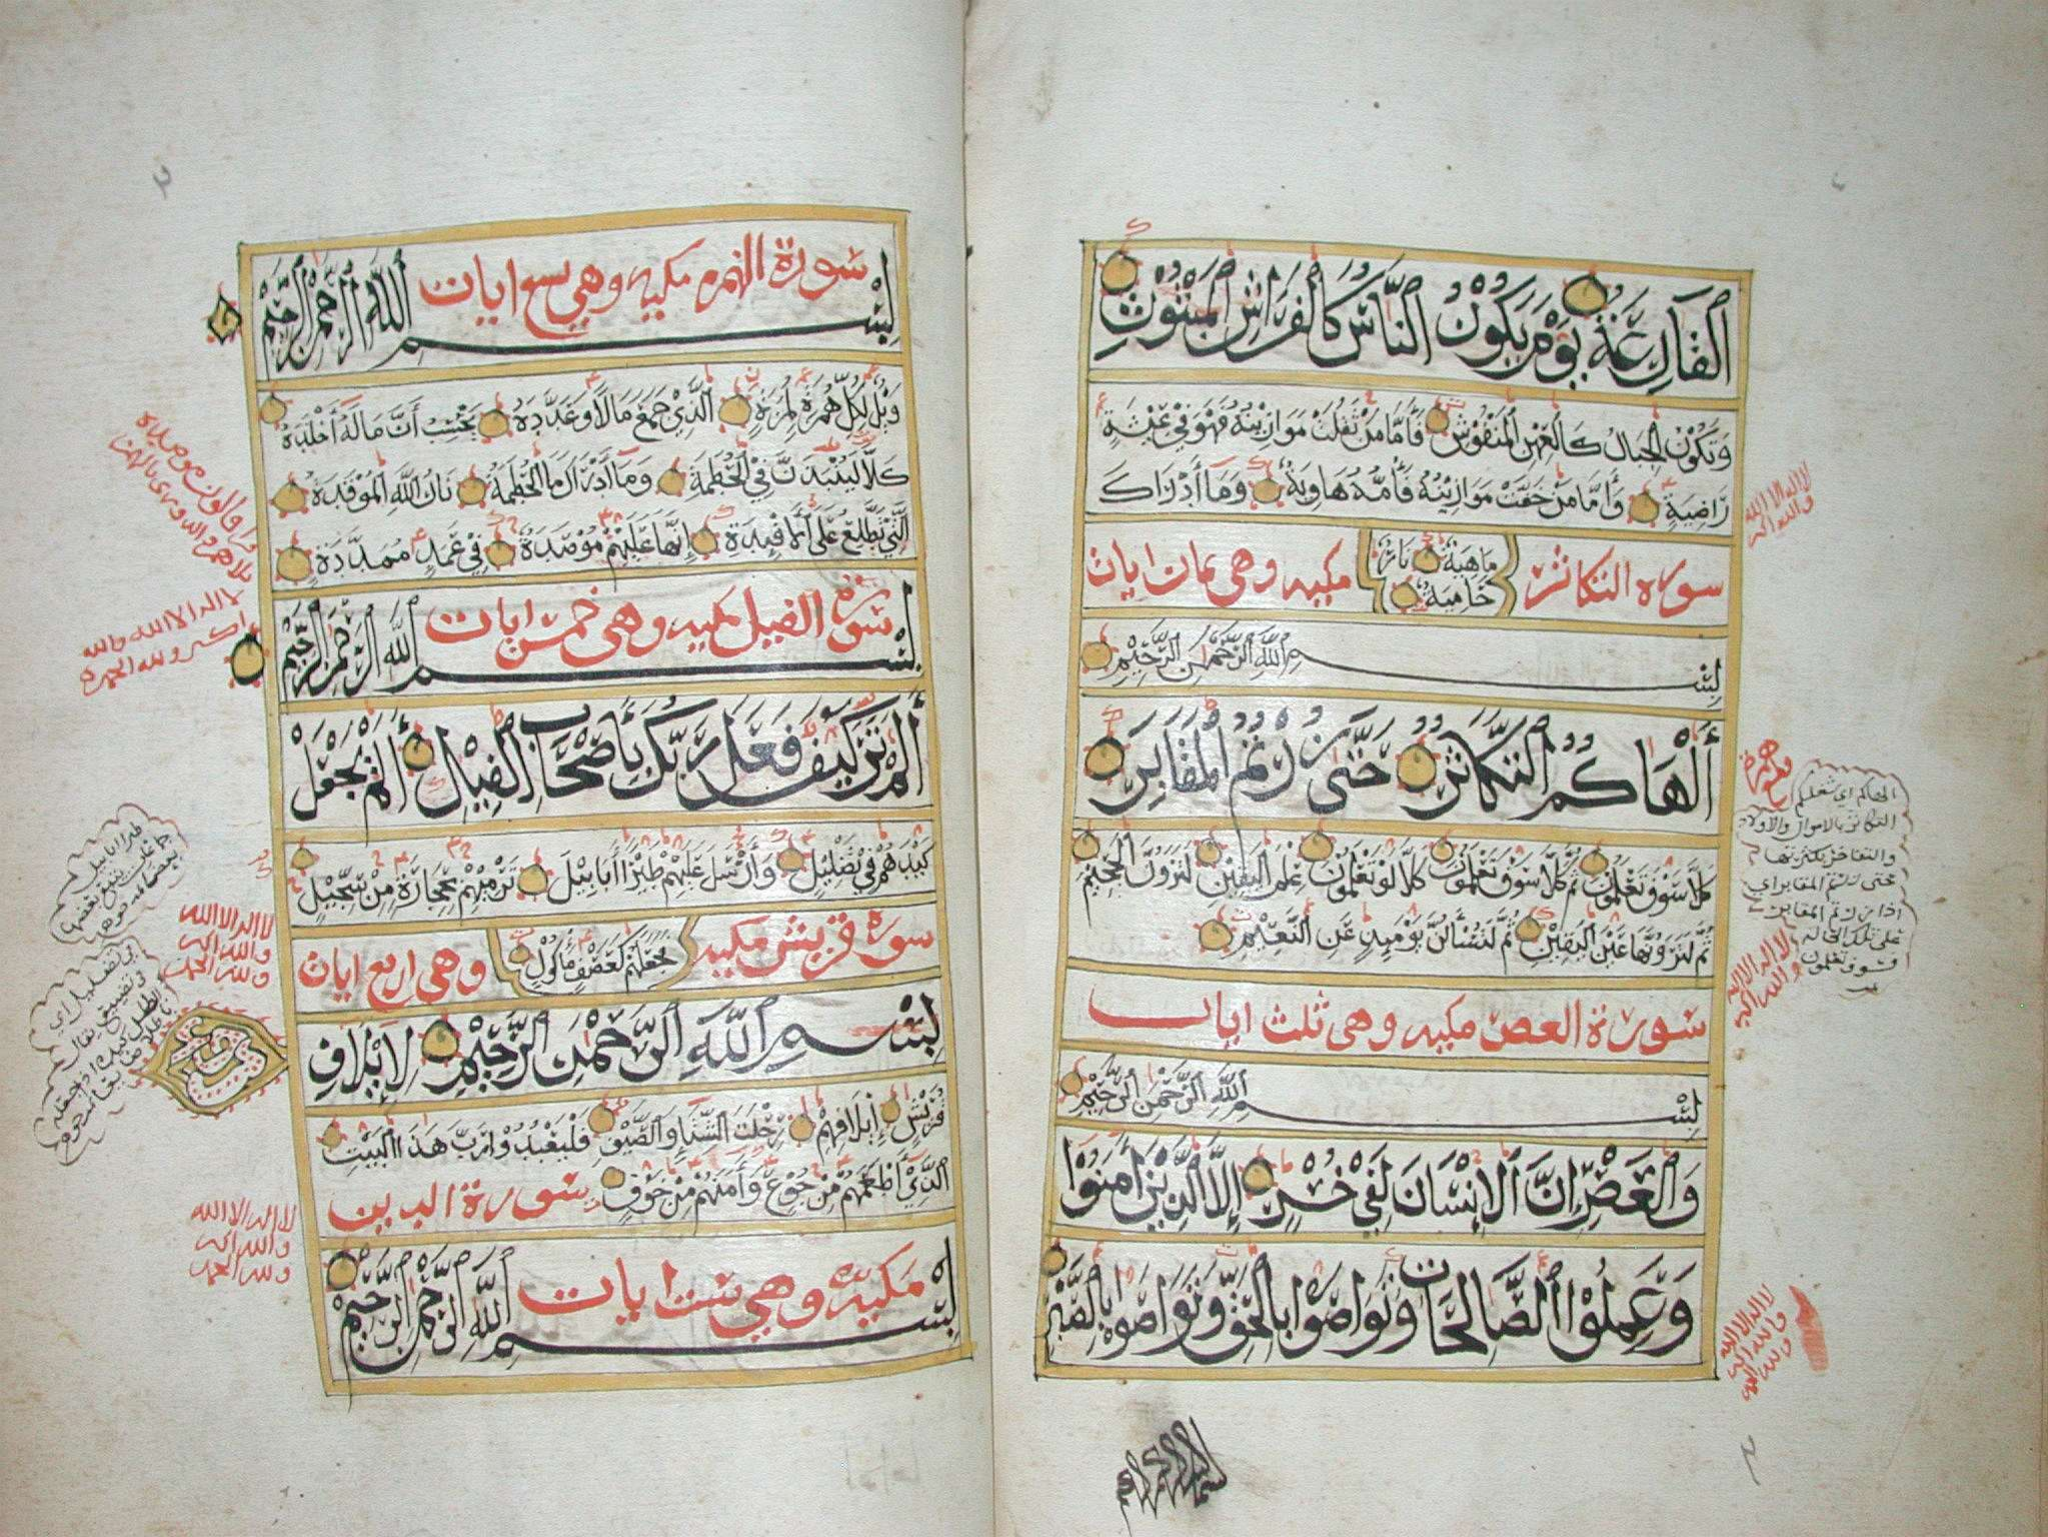 ٱلْقَارِعَةُ يَوْمَ يَكُونُ ٱلنَّاسُ كَالْفَرَاشِ الْمَبْثُوثِ
وَتَكُونُ الْجِبَالُ كَالْعِهْنِ الْمَنْفُوشِ فَأَمَّا مَنْ ثَقُلَتْ مَوَازِيْنُهُ فَهُوَ فِيْ عِيْشَةٍ
رَّاضِيَةٍ وَأَمَّا مَنْ خَفَّتْ مَوَازِيْنُهُ فَأُمُّهُ هَاوِيَةٌ وَمَا أَدْرَاكَ
مَاهِيَهْ نَارٌ
حَامِيَةٌ
سورة التكاثر مكيه وهى ثمان ايات
بِسْمِ اللَّهِ الرَّحْمٰنِ الرَّحِيْمِ
أَلْهَاكُمُ ٱلتَّكَاثُرُ حَتَّىٰ زُرْتُمُ الْمَقَابِرَ
كَلَّا سَوْفَ تَعْلَمُونَ ثُمَّ كَلَّا سَوْفَ تَعْلَمُونَ كَلَّا لَوْ تَعْلَمُونَ عِلْمَ الْيَقِيْنِ لَتَرَوُنَّ الْجَحِيْمَ
ثُمَّ لَتَرَوُنَّهَا عَيْنَ الْيَقِيْنِ ثُمَّ لَتُسْأَلُنَّ يَوْمَئِذٍ عَنِ النَّعِيْمِ
سورة العصر مكيه وهى ثلث ايات
بِسْمِ اللَّهِ الرَّحْمٰنِ الرَّحِيْمِ
وَالْعَصْرِ إِنَّ ٱلْإِنْسَانَ لَفِيْ خُسْرٍ إِلَّا الَّذِيْنَ آمَنُوْا
وَعَمِلُوْا الصَّالِحَاتِ وَتَوَاصَوْا بِالْحَقِّ وَتَوَاصَوْا بِالصَّبْرِ
لا اله الا الله
والله اكبر
الهاكم اي شغلكم
التكاثر بالاموال والاولاد
والتفاخر بكثرتها
حتى زرتم المقابر اي
لا اله الا الله
والله اكبر
لا اله الا الله
والله اكبر
ولله الحمد
سورة الهمزه مكيه وهي تسع ايات
بِسْمِ اللَّهِ الرَّحْمٰنِ الرَّحِيْمِ
وَيْلٌ لِكُلِّ هُمَزَةٍ لُمَزَةٍ الَّذِيْ جَمَعَ مَالًا وَعَدَّدَهُ يَحْسِبُ أَنَّ مَالَهُ أَخْلَدَهُ
كَلَّا لَيُنْبَذَنَّ فِي الْحُطَمَةِ وَمَا أَدْرَاكَ مَا الْحُطَمَةُ نَارُ اللَّهِ الْمُوْقَدَةُ
الَّتِيْ تَطَّلِعُ عَلَى الْأَفْئِدَةِ إِنَّهَا عَلَيْهِمْ مُوْصَدَةٌ فِيْ عَمَدٍ مُمَدَّدَةٍ
سورة الفيل مكيه وهى خمس ايات
بِسْمِ اللَّهِ الرَّحْمٰنِ الرَّحِيْمِ
أَلَمْ تَرَ كَيْفَ فَعَلَ رَبُّكَ بِأَصْحَابِ الْفِيْلِ أَلَمْ يَجْعَلْ
كَيْدَهُمْ فِيْ تَضْلِيْلٍ وَأَرْسَلَ عَلَيْهِمْ طَيْرًا أَبَابِيْلَ تَرْمِيْهِمْ بِحِجَارَةٍ مِنْ سِجِّيْلٍ
فَجَعَلَهُمْ كَعَصْفٍ مَأْكُولٍ
سورة قريش مكيه وهى اربع ايات
بِسْمِ اللَّهِ الرَّحْمٰنِ الرَّحِيْمِ لِإِيْلَافِ
قُرَيْشٍ إِيْلَافِهِمْ رِحْلَةَ الشِّتَاءِ وَالصَّيْفِ فَلْيَعْبُدُوْا رَبَّ هَذَا الْبَيْتِ
الَّذِيْ أَطْعَمَهُمْ مِنْ جُوْعٍ وَآمَنَهُمْ مِنْ خَوْفٍ سورة الدين
مكيه وهي ست ايات
بِسْمِ اللَّهِ الرَّحْمٰنِ الرَّحِيْمِ
لا اله الا الله والله
اكبر ولله الحمد
طيرا ابابيل
لا اله الا الله
والله اكبر
ولله الحمد
لا اله الا الله
والله اكبر
ولله الحمد